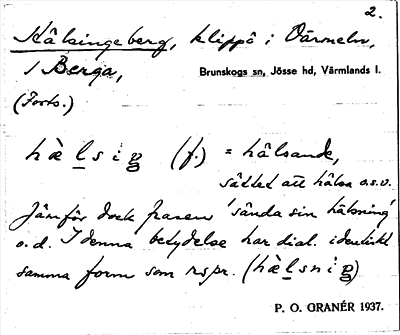 2.
Hälsingeberg, klippö i Värmeln,
/ Berga, Brunskogs sn, Jösse hd, Värmlands l.
(Forts.)
hälsig (f.) = hälsande,
sättet att hälsa o.s.v.
Jämför dock frasen 'sända sin hälsning'
o.d. I denna betydelse har dial. identiskt
samma form som rspr. (hälsnig)
P. O. GRANÉR 1937.